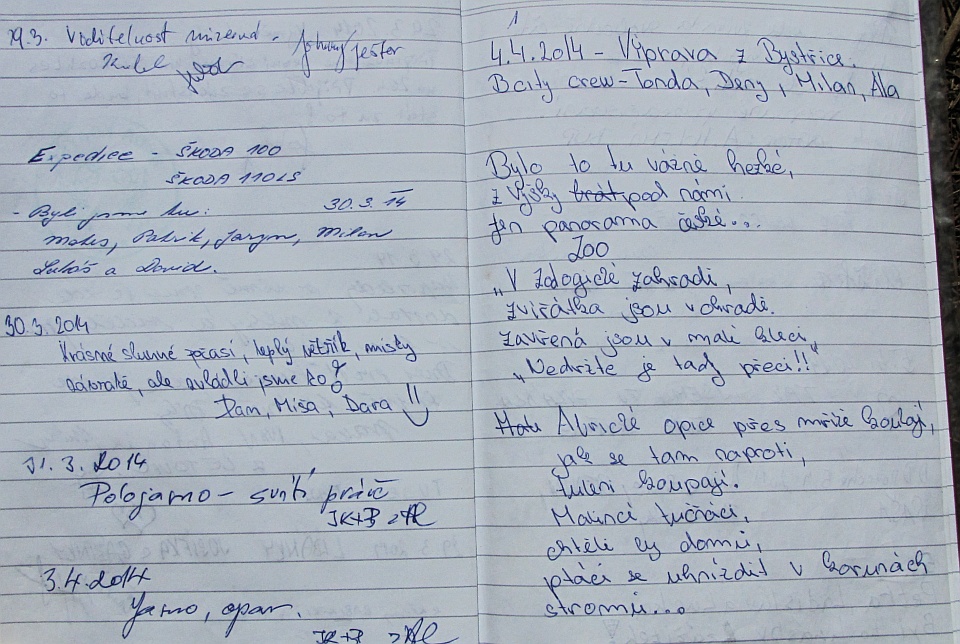 29.3. Viditelnost mizerná.
Expedice - ŠKODA 100
ŠKODA 110LS
- Byli jsme tu: 30.3.14
Patrik, Jarym, Milan
Lukáš a David.
30.3.2014
Krásné slunné počasí, teplý větřík, místy
ale zvládli jsme to
Dam, Míša, Dara
31.3.2014
Polojarno - svítí
JK+B
3.4.2014
Jarno, opar.
JK+B
1
4.4.2014 - Výprava z Bystřice.
Bcity crew - Tonda, Deny, Milan, Ala
Bylo to tu vážně hezké,
z výšky brát pod námi.
Jen panorama české...
ZOO
„V Zologické zahradě,
zvířátka jsou v ohradě.
Zavřená jsou v malé kleci„
„Nedržte je tady přeci!!"
Africké opice přes mříže koukají,
jak se tam naproti,
tuleni koupají.
Malincí tučňáci,
chtěli by domů,
ptáci se uhnízdit v korunách
stromů...